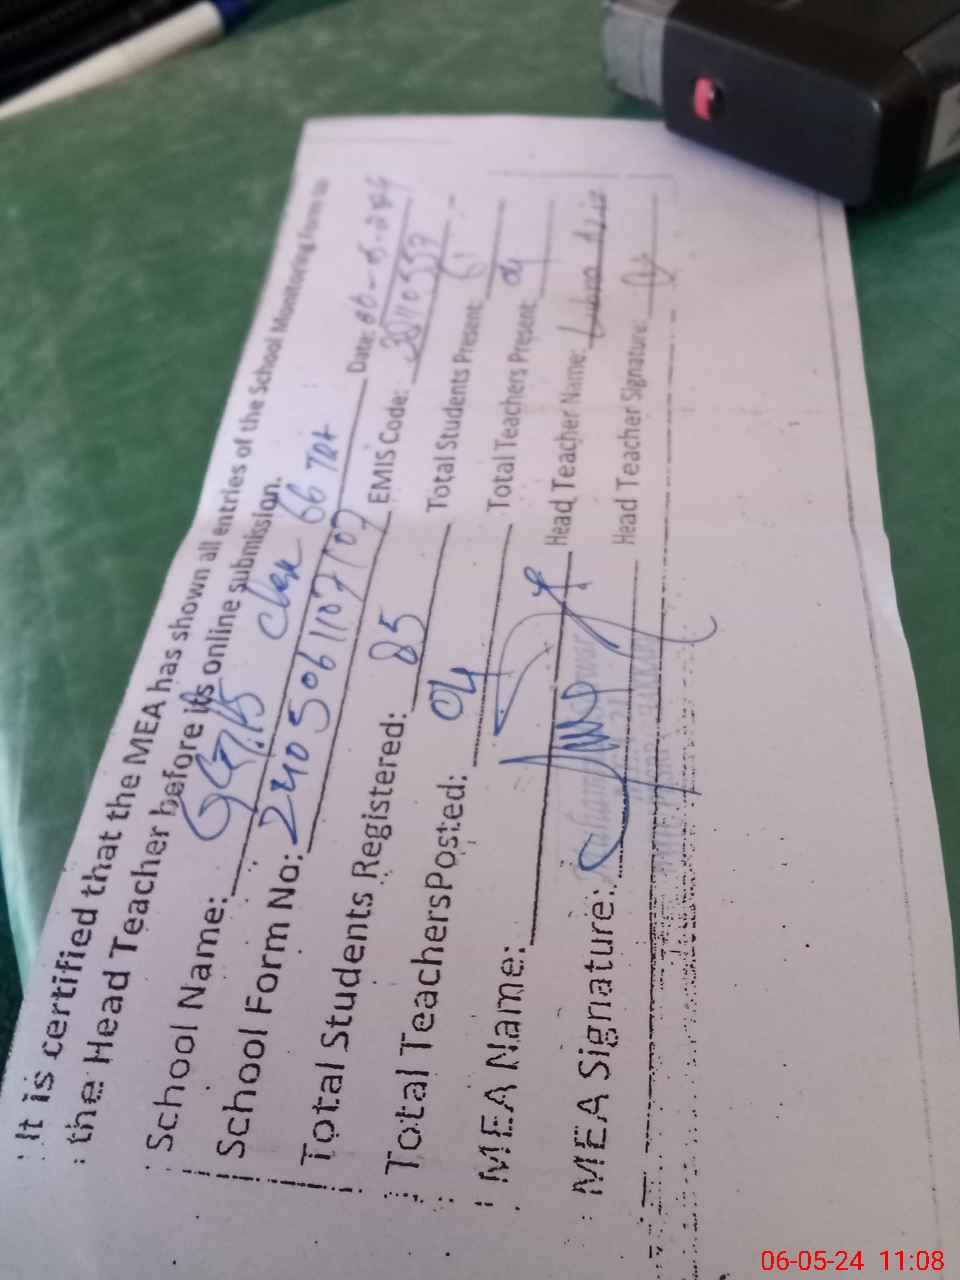 It is certified that the MEA has shown all entries of the School Monitoring Form to
the Head Teacher before its online submission.
School Name: GGPS Chak 66 TDA Date: 06-5-24
School Form No: 2405061107107 EMIS Code:
Total Students Registered: 85 Total Students Present: 61
Total Teachers Posted: 04 Total Teachers Present: 04
MEA Name: Head Teacher Name: Lubna Aziz
MEA Signature: Head Teacher Signature:
06-05-24 11:08